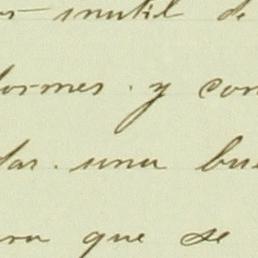 inutil de
formes. y con
das. una bue
ara que se